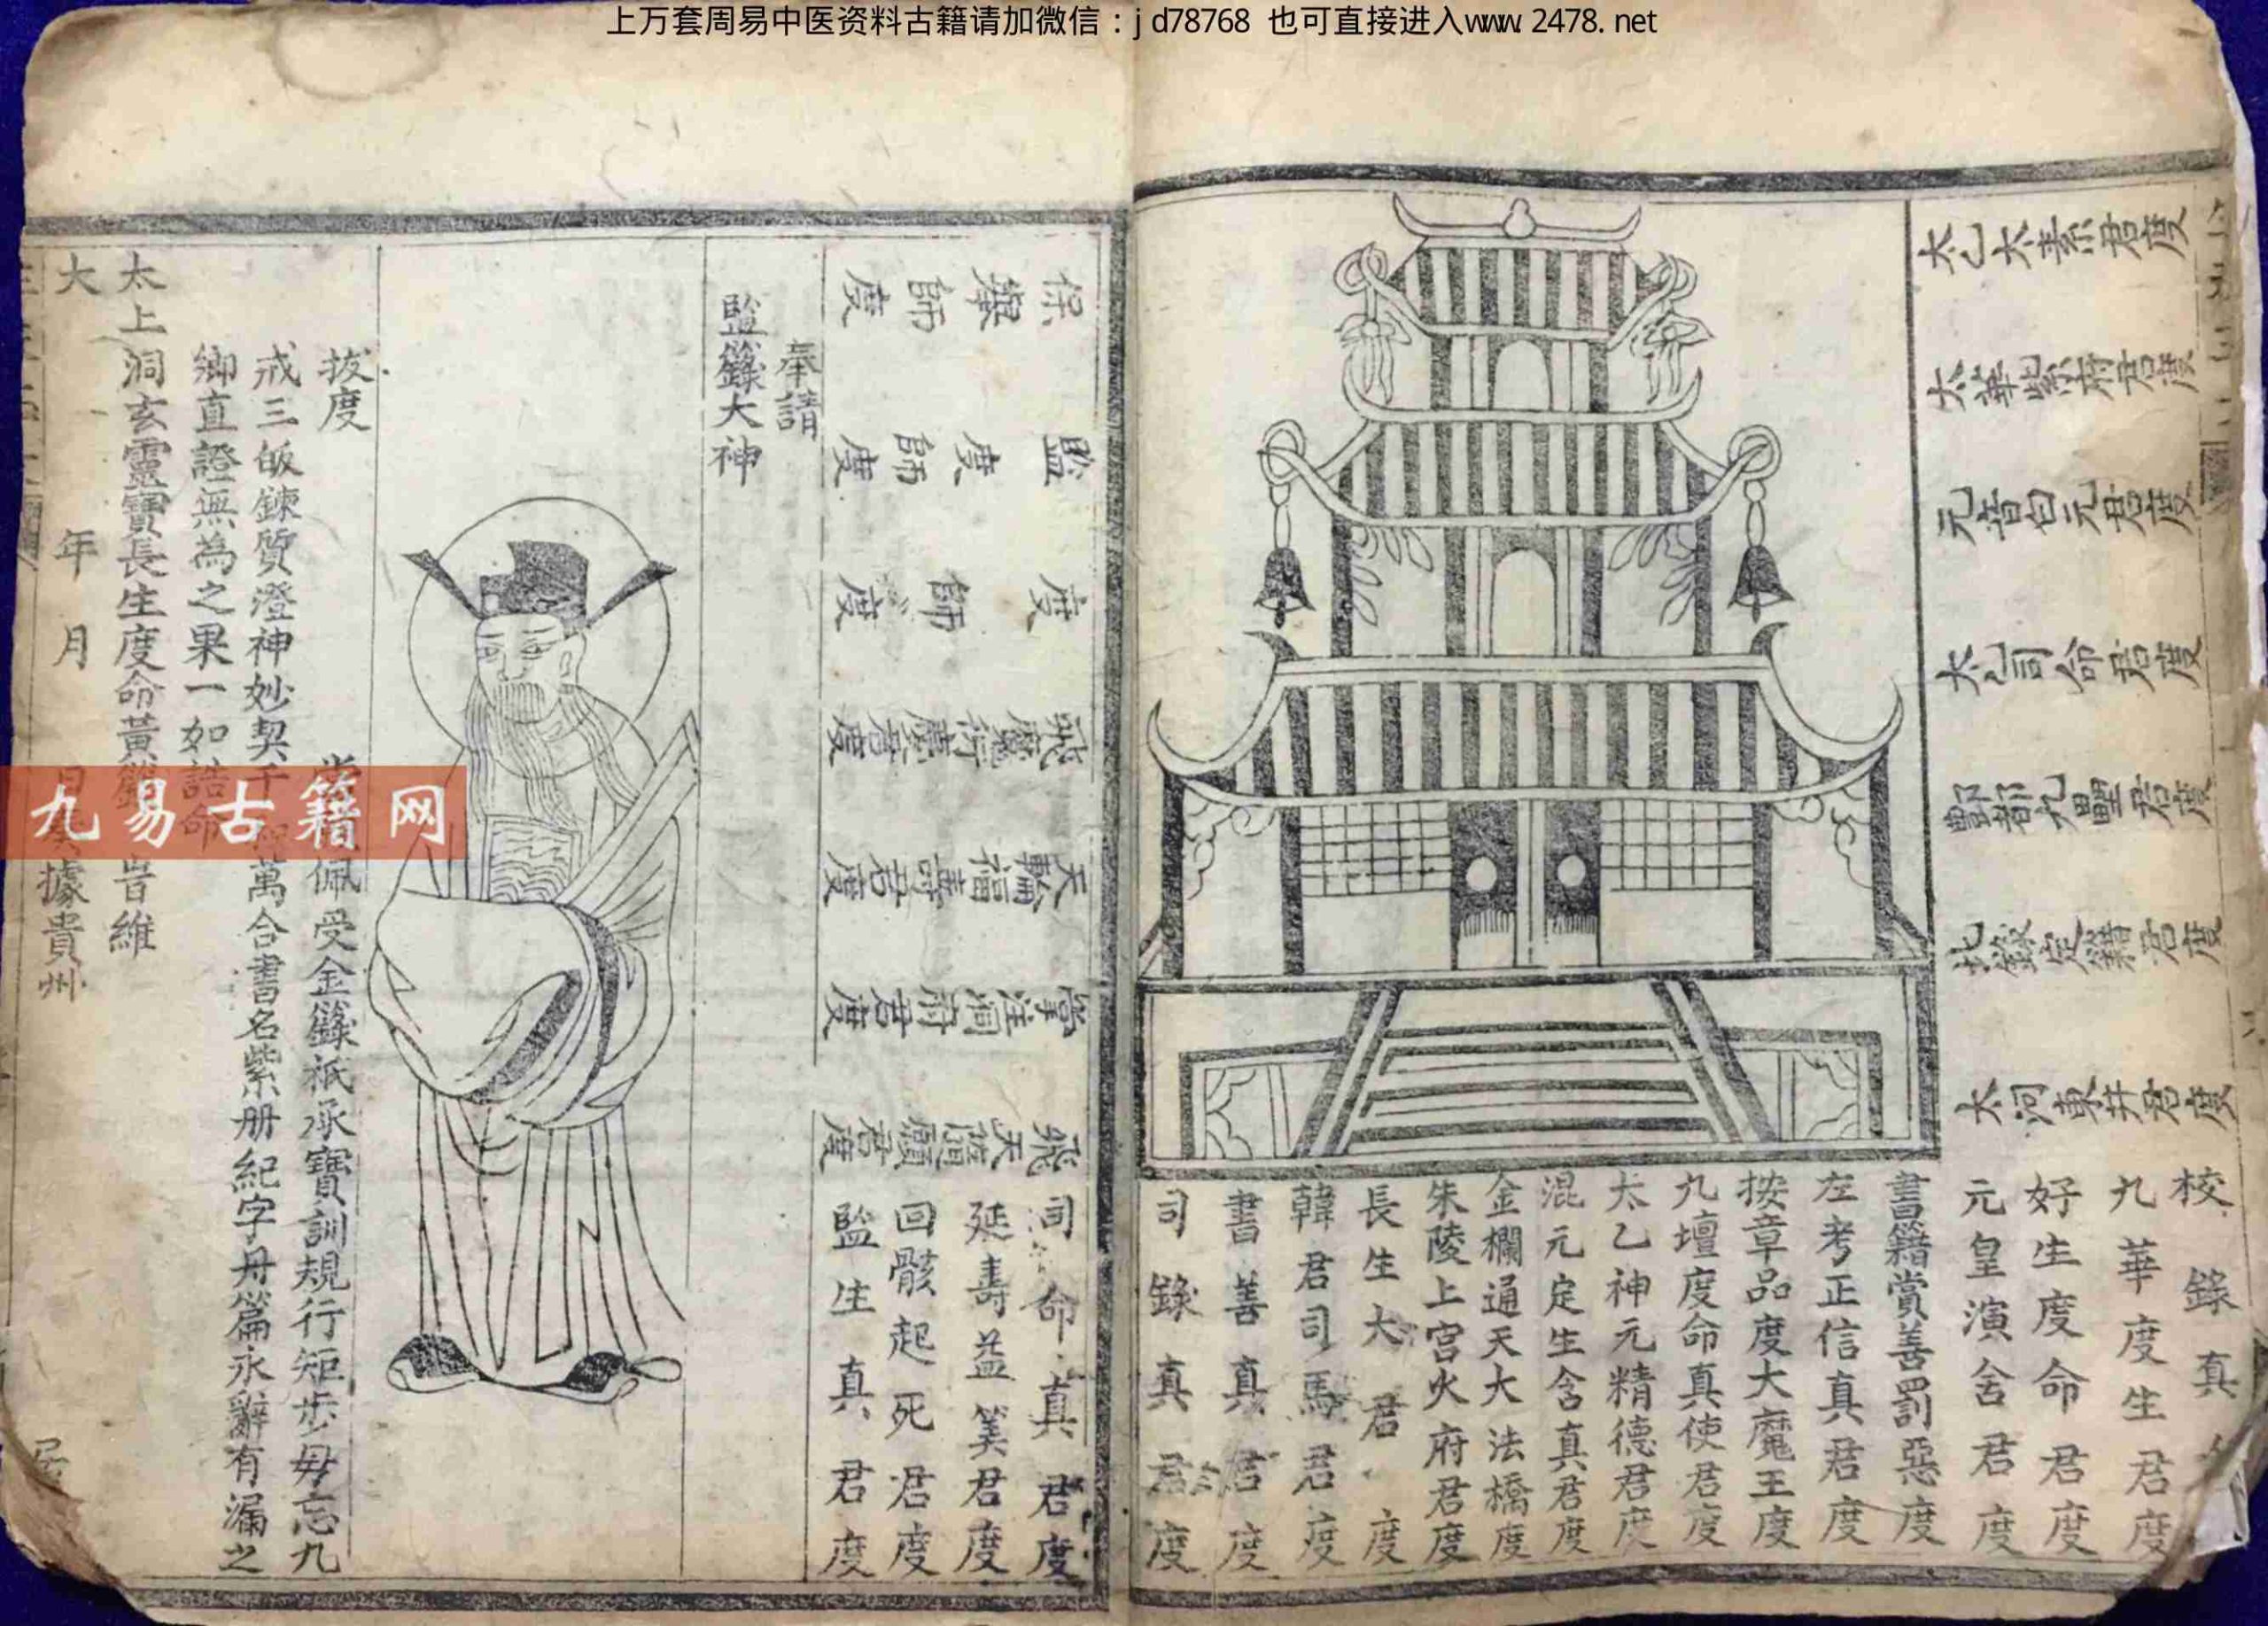 上万套周易中医资料古籍请加微信：jd78768 也可直接进入www.2478.net
太乙大素君度
太華紫府君度
元晋白元君度
太乙司命君度
酆都九壘君度
北錄定籍君度
太河東井君度
校錄真
九華度生君度
好生度命君度
元皇演舍君度
書籍賞善罰惡度
左考正信真君度
按章品度大魔王度
九壇度命真使君度
太乙神元精德君度
混元定生含真君度
金欄通天大法橋度
朱陵上宮火府君度
長生大君度
韓君司馬君度
書善真君度
司錄真君度
保舉師度
監度師度
度師度
飛魔行慶君度
天輪福壽君度
掌注洞府君度
飛天蘭願君度
司命真君度
延壽益筭君度
回骸起死君度
監生真君度
奉請
監籙大神
拔度
佩受金籙祇承寶訓規行矩步毋忘九
戒三皈鍊質澄神妙契千萬合書名紫册紀字丹篇永辭有漏之
鄉直證無為之果一如誥命
太上洞玄靈寶長生度命黃籙旨維
大 年 月 日 據貴州
九易古籍网